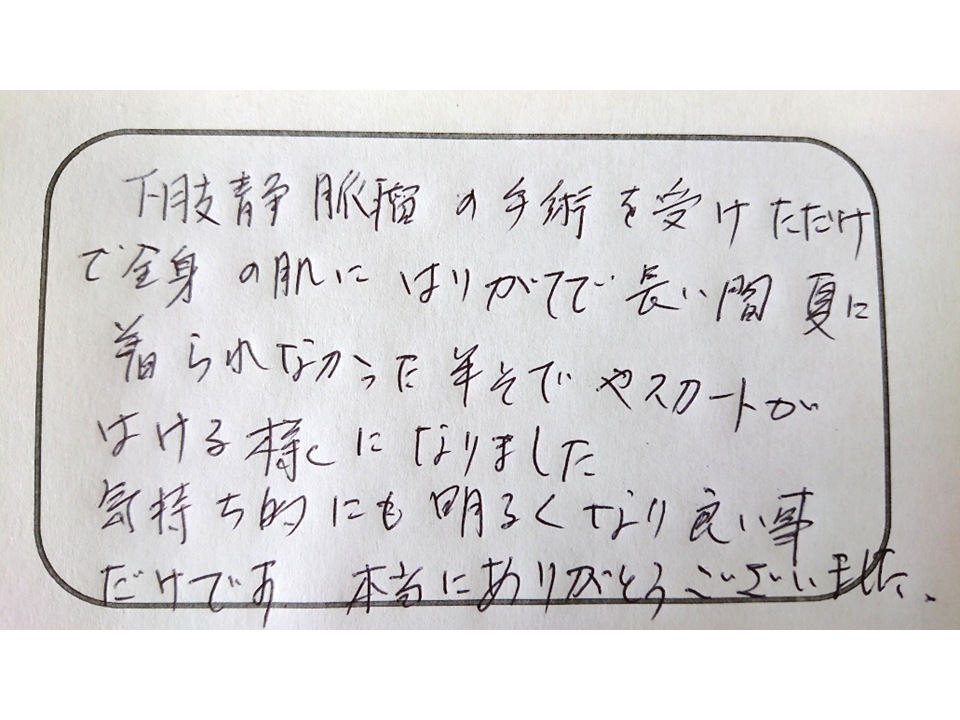 下肢静脈瘤の手術を受けただけ
で全身の肌にはりがでて長い間夏に
着られなかった半そでやスカートが
はける様になりました
気持ち的にも明るくなり良い事
だけです 本当にありがとうございました、